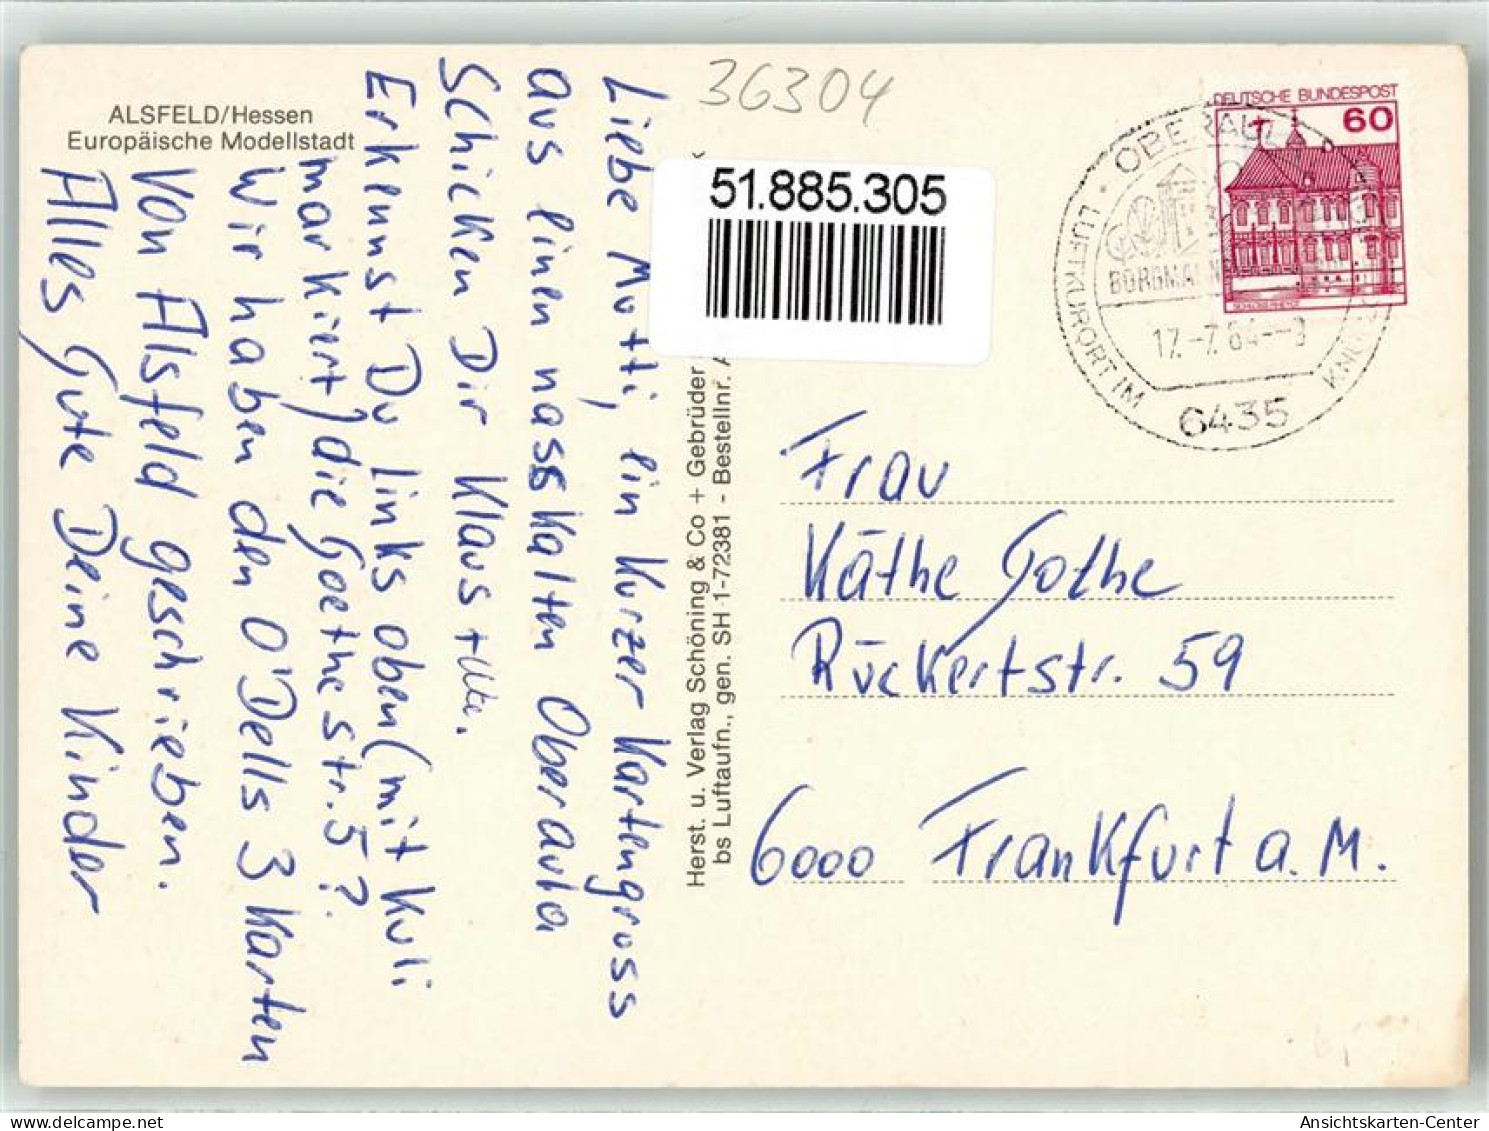 ALSFELD/Hessen
Europäische Modellstadt
Liebe Mutti, ein kurzer Kartengross
aus einen nasskalten Oberaula
Schicken Dir Klaus + Ute.
Erkennst Du links oben (mit Kuli
markiert) die Goethestr. 5?
Wir haben den O'Dells 3 Karten
Von Alsfeld geschrieben.
Alles Gute Deine Kinder
36304
51.885.305
Herst. u. Verlag Schöning & Co + Gebrüder
bs Luftaufn., gen. SH 1-72381 - Bestellnr. A
DEUTSCHE BUNDESPOST
60
LUFTKURORT IM
17.-7.84
6435
Frau
Käthe Gothe
Rückertstr. 59
6000 Frankfurt a. M.
Ansichtskarten-Center